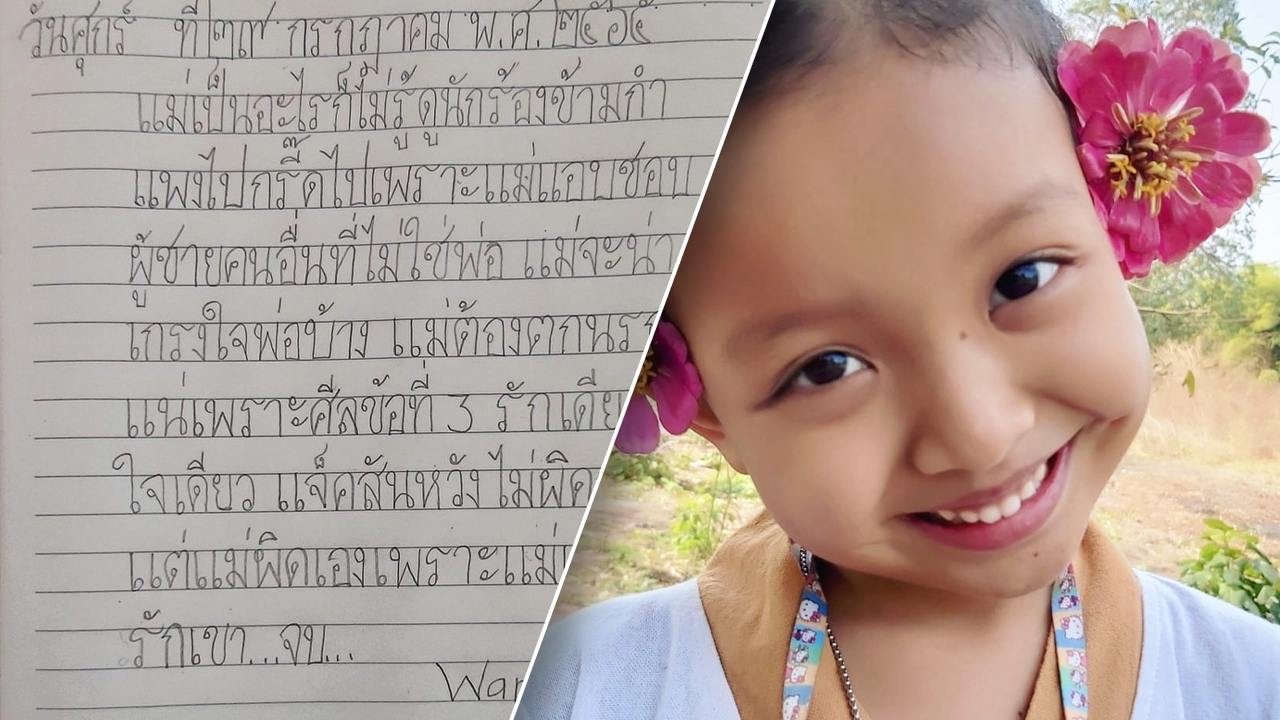 วันศุกร์ ที่๒๗ กรกฎาคม พ.ศ.๒๕๖๕
แม่เป็นอะไรก็ไม่รู้ดูนักร้องข้ามกำ
แพงไปกรี๊ดไปเพราะแม่แอบชอบ
ผู้ชายคนอื่นที่ไม่ใช่พ่อ แม่จะน่า
เกรงใจพ่อบ้าง แม่ต้องตกนร
แน่เพราะศีลข้อที่ 3 รักเดีย
ใจเดียว แจ็คสันหวัง ไม่ผิด
แต่แม่ผิดเองเพราะแม่
รักเขา...จบ...